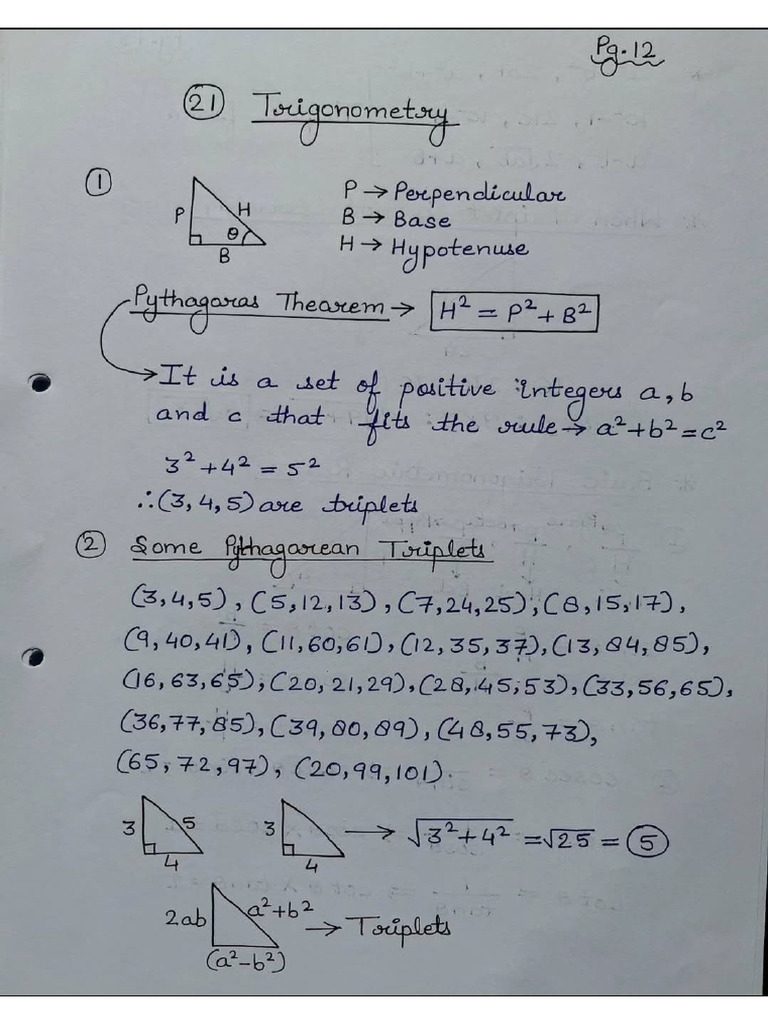 Pg.12
21 Trigonometry
1
P → Perpendicular
B → Base
H → Hypotenuse
P
H
θ
B
Pythagaras Thearem → H² = P² + B²
→ It is a set of positive integers a, b
and c that fits the rule → a² + b² = c²
3² + 4² = 5²
∴ (3, 4, 5) are triplets
2 Some Pythagarean Triplets
(3,4,5), (5,12,13), (7,24,25), (8,15,17),
(9,40,41), (11,60,61), (12,35,37), (13,84,85),
(16,63,65), (20,21,29), (28,45,53), (33,56,65),
(36,77,85), (39,80,89), (48,55,73),
(65,72,97), (20,99,101).
3 5 4
3 4 → √3²+4² = √25 = 5
2ab a²+b² → Triplets
(a²-b²)